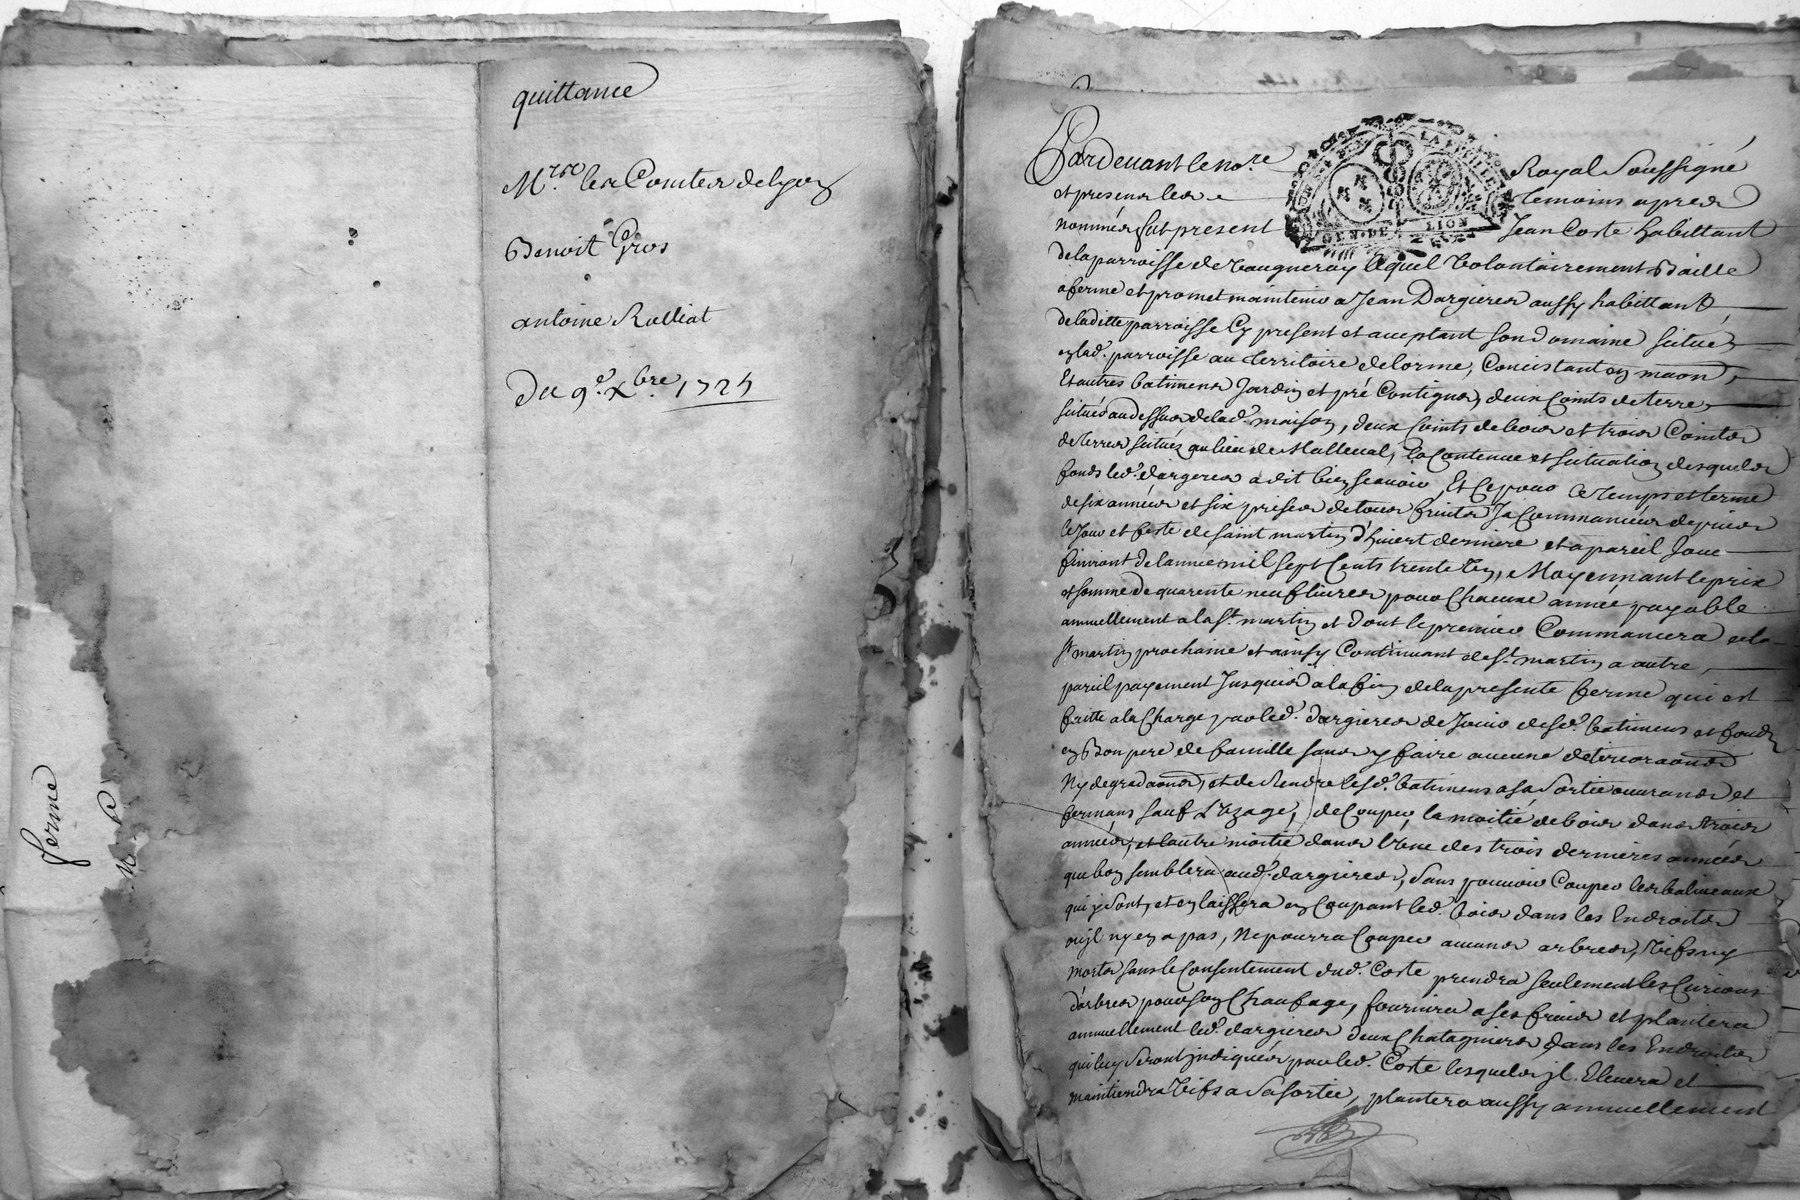 quittance
Mrs. les Comtes de Lyon
Benoit Gros
antoine Ralliat
Du 9e. Xbre. 1725
ferme
Pardevant le nore. Royal Soussigné
et presens les temoins apres
nommés fut present Jean Coste habittant
GEN. DE LION
de la parroisse de Vaugneray lequel volontairement Baille
a ferme et promet maintenir a Jean Dargieres aussy habittant
de laditte parroisse Cy present et aceptant son Domaine situé
en lad. parroisse au territoire de lorme, Concistant en maon,
Et autres batimens Jardin et pré Contigus, deux Coints de terre
situés au dessus de lad. maison, deux Coints de bois et trois Coints
de terres situez au lieu de Malleval, la Contenue et situation desquels
fonds led. dargieres a dit bien scavoir, Et Ce pour le temps et terme
de six années et six prises de tous fruits Ja Commancées depuis
le Jour et feste de saint martin d'hiuert derniere et a pareil Jour
finiront de lannee mil sept Cents trente, Moyennant le prix
et somme de quarente neuf liures pour Chacune année payable
annuellement a la st. martin et dont le premier Commancera a la
st. martin prochaine et ainsy Continuant de st. martin a autre,
pareil payement Jusques a la fin de la presente ferme qui est
faitte a la Charge par led. dargieres de Jouir desd. batimens et fonds
en Bon pere de famille sans y faire aucune deterioraons
Ny degradaons, et de Rendre lesd. batimens a sa Sortie ouurans et
fermans sauf L'Vzage, de Couper la moitié de bois dans trois
années, et l'autre moitié dans l'Vne des trois dernieres années
que bon semblera aud. dargieres, Sans pouuoir Couper les baliueaux
qui y sont, et en laissera en Coupant led. bois dans les Endroits
ou jl n'y en a pas, Ne pourra Couper aucuns arbres, Vifs ny
morts sans le Consentement dud. Coste prendra seulement les
d'arbres pour son Chaufage, fournira a ses frais et plantera
annuellement led. dargieres deux Chatagniers dans les Endroits
qui luy seront jndiqués par led. Coste lesquels jl Eleuera et
maintiendra Vifs a sa sortie, plantera aussy annuellement